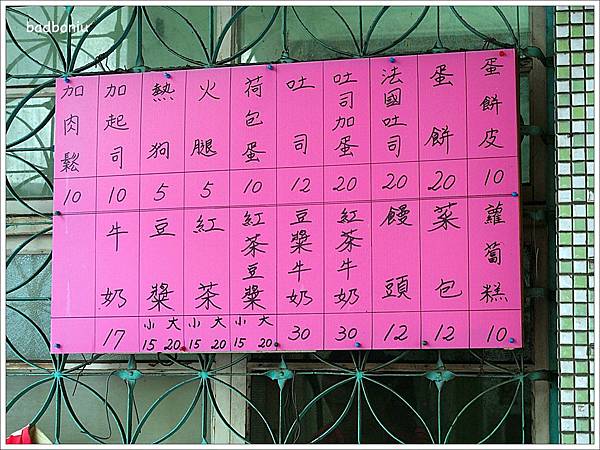 badbaniu
蛋餅皮 10
蛋餅 20
法國吐司 20
吐司加蛋 20
吐司 12
荷包蛋 10
火腿 5
熱狗 5
加起司 10
加肉鬆 10
蘿蔔糕 10
菜包 12
饅頭 12
紅茶牛奶 30
豆漿牛奶 30
紅茶豆漿 小15 大20
紅茶 小15 大20
豆漿 小15 大20
牛奶 17